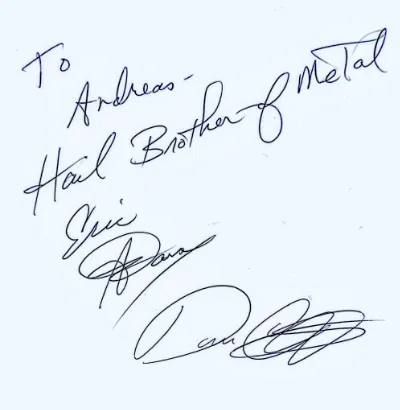 To
Andreas-
Hail Brother of Metal
Eric
Adams